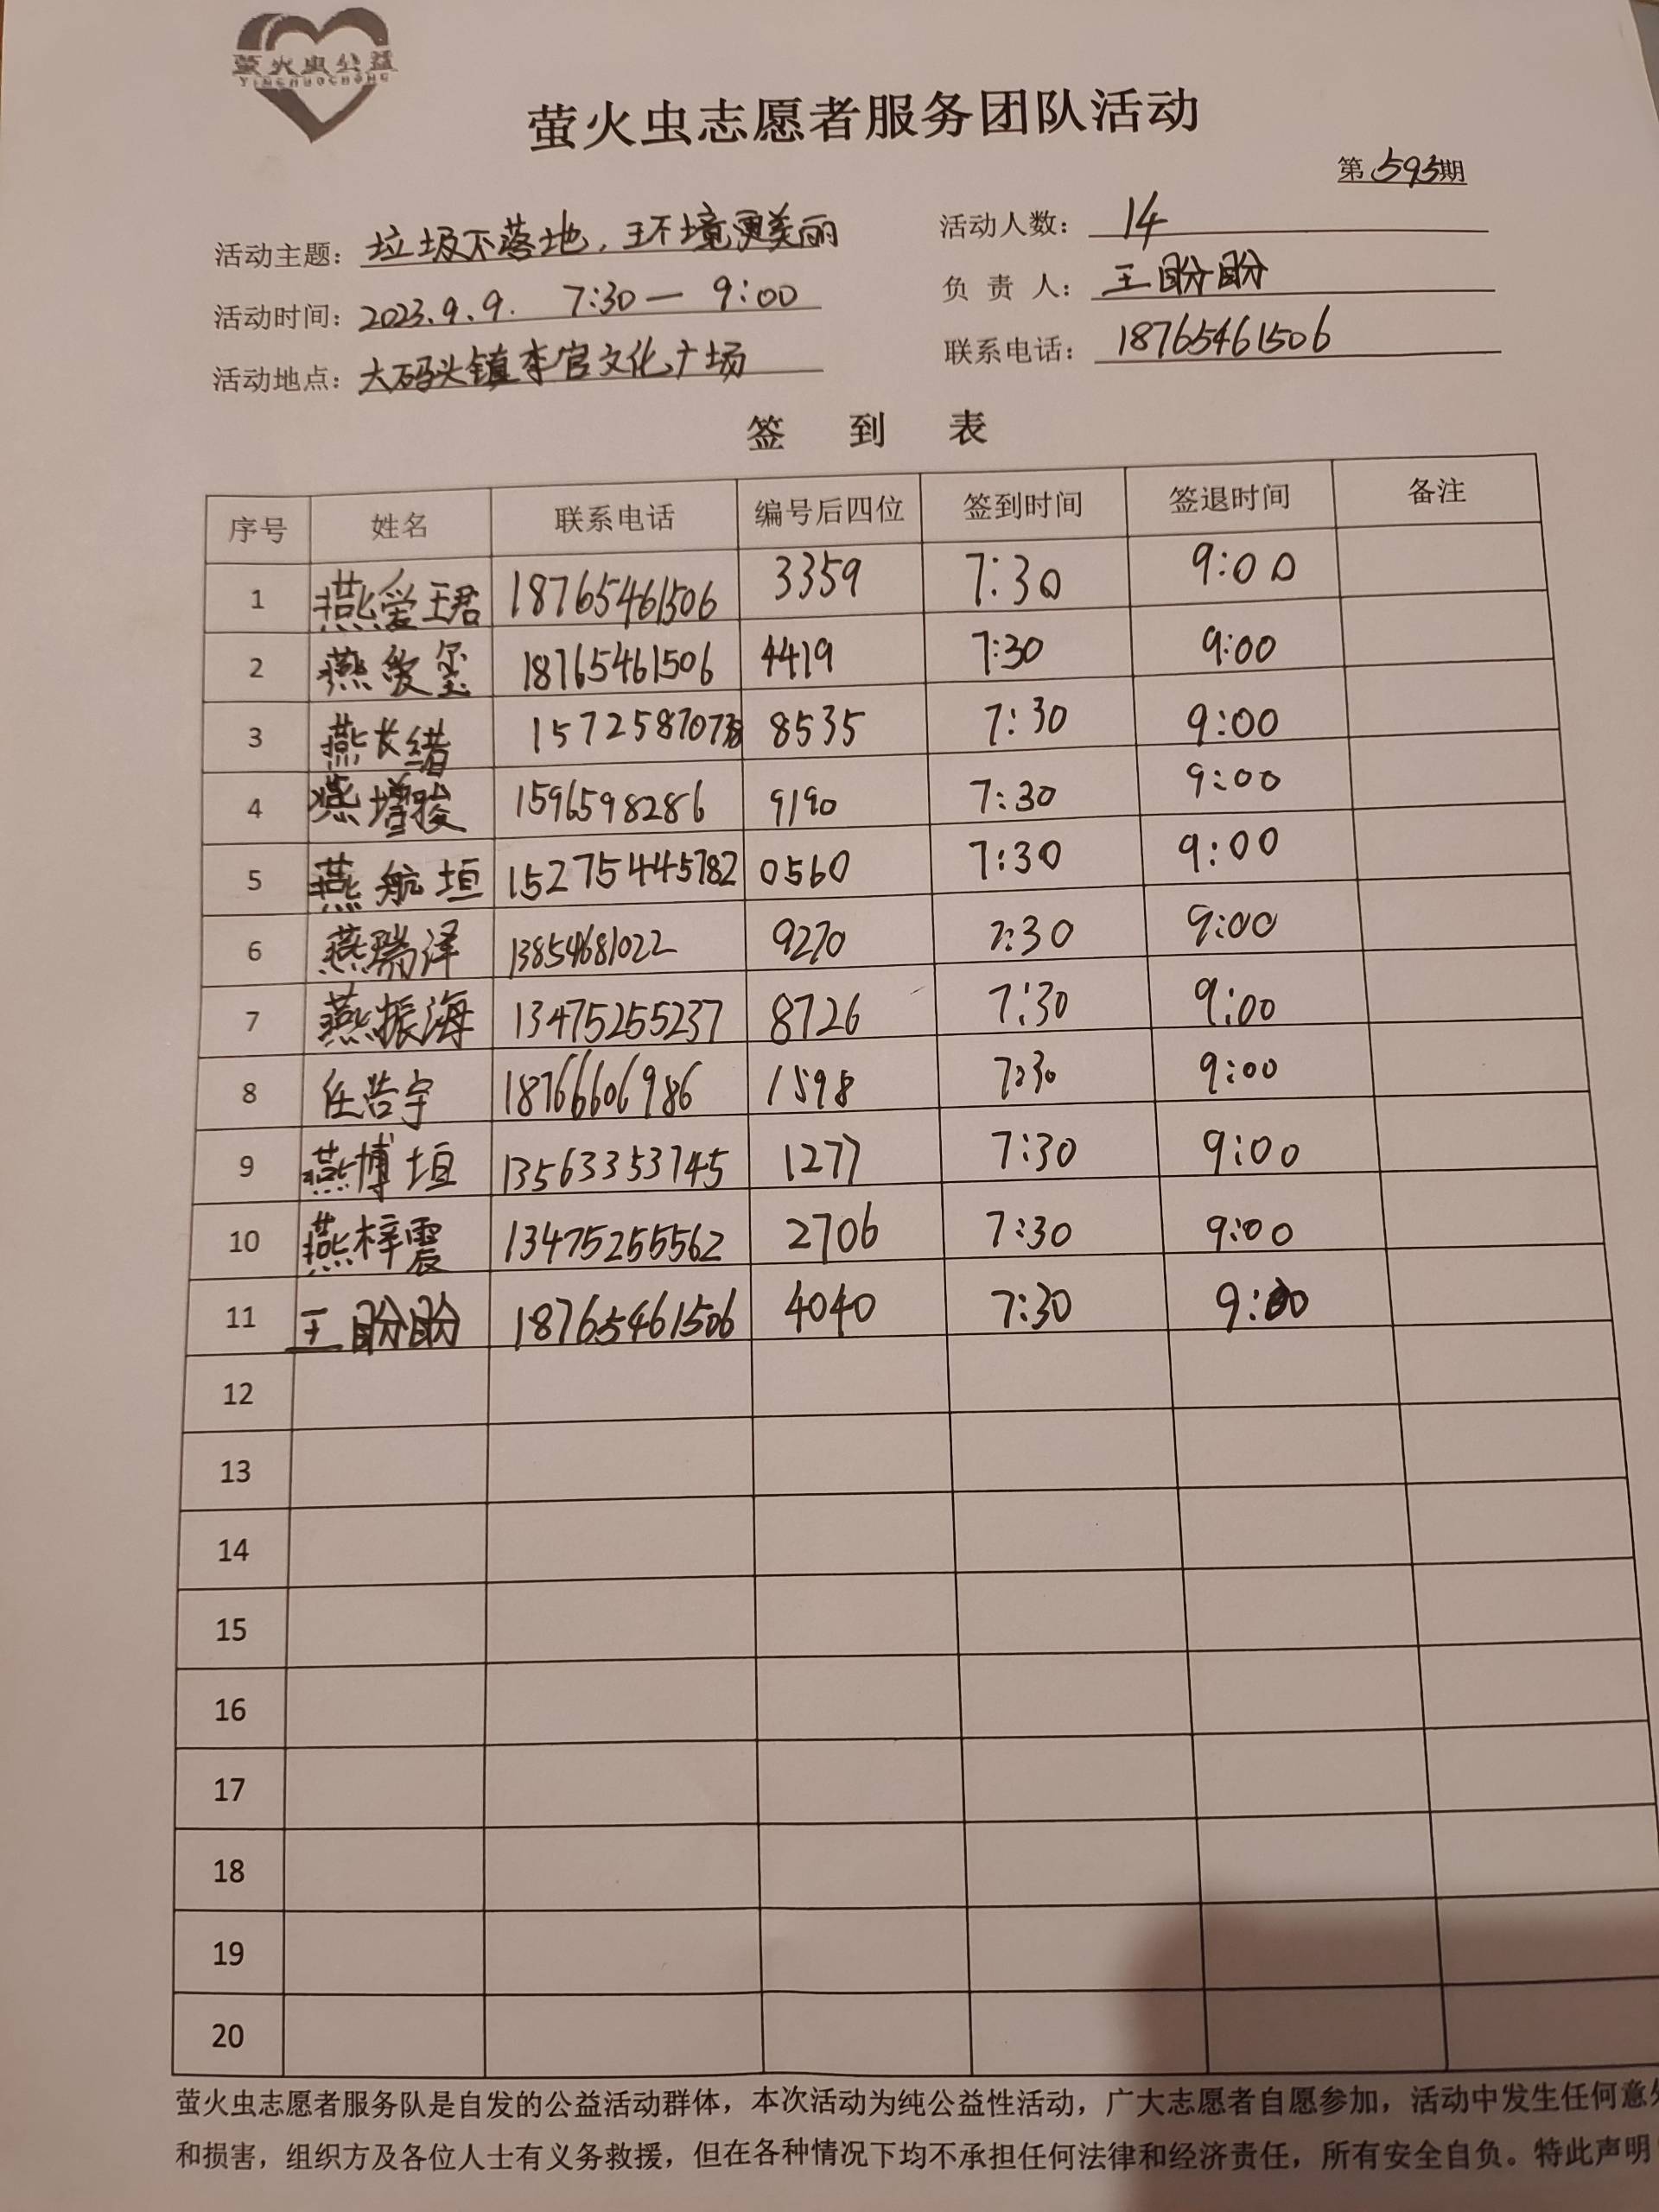 萤火虫公益
YINGHUOCHONG
萤火虫志愿者服务团队活动
第 595期
活动主题：垃圾不落地，环境更美丽 活动人数：14
活动时间：2023.9.9. 7:30一 9:00 负 责 人：王盼盼
活动地点：大码头镇李官文化广场 联系电话：18765461506
签 到 表
序号 姓名 联系电话 编号后四位 签到时间 签退时间 备注
1 燕爱珺 18765461506 3359 7:30 9:00
2 燕爱玺 18765461506 4419 7:30 9:00
3 燕长绪 8535 7:30 9:00
4 燕增骏 1596598286 9190 7:30 9:00
5 燕航垣 15275445782 0560 7:30 9:00
6 燕瑞泽 13854681022 9270 7:30 9:00
7 燕振海 13475255237 8726 7:30 9:00
8 任浩宇 18766606986 1598 7:30 9:00
9 燕博垣 13563353745 1277 7:30 9:00
10 燕梓震 13475255562 2706 7:30 9:00
11 王盼盼 18765461506 4040 7:30 9:00
12
13
14
15
16
17
18
19
20
萤火虫志愿者服务队是自发的公益活动群体，本次活动为纯公益性活动，广大志愿者自愿参加，活动中发生任何意
和损害，组织方及各位人士有义务救援，但在各种情况下均不承担任何法律和经济责任，所有安全自负。特此声明